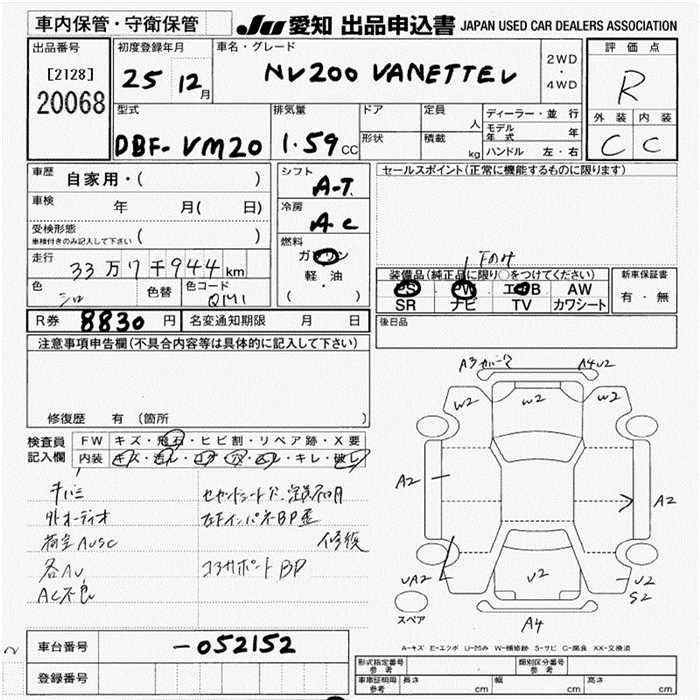 車内保管・守衛保管
JU 愛知 出品申込書 JAPAN USED CAR DEALERS ASSOCIATION
出品番号
[2128]
20068
初度登録年月
25 12月
車名・グレード
NV200 VANETTE V
2WD
・
4WD
評価点
R
外装 内装
C C
型式
DBF- VM20
排気量
1.59 CC
ドア
形状
定員
人
積載
kg
ディーラー・並行
モデル年式 年
ハンドル 左・右
車歴 自家用・( )
車検 年 月( 日)
受検形態
車検付きのみ記入して下さい ( )
走行
33万17千944km
色 シロ
色替
色コード
QM1
シフト
A-T
冷房
A.C
燃料
ガソリン
軽・油
( ・ )
セールスポイント(正常に機能するものに限ります)
装備品(純正品に限り○をつけてください)
PS PW エアB AW
SR ナビ TV カワシート
新車保証書
有・無
後日品
R券 8830 円
名変通知期限 月 日
注意事項申告欄(不具合内容等は具体的に記入して下さい)
修復歴 有(箇所 )
検査員
記入欄
FW キズ・飛石・ヒビ割・リペア跡・X要
内装 キズ・汚れ・コゲ・穴・ ・キレ・破レ
外オーディオ
AC不良
修復
コアサポートBP
A4U2
W2
W2
W2
A2
A2
UA2
U2
U2
S2
A4
スペア
A-キズ E-エクボ U-凹み W-補修跡 S-サビ C-腐食 XX-交換済
車台番号
-052152
登録番号
形式指定番号
参考
類別区分番号
参考
車庫証明用
参考
長さ cm
幅 cm
高さ cm